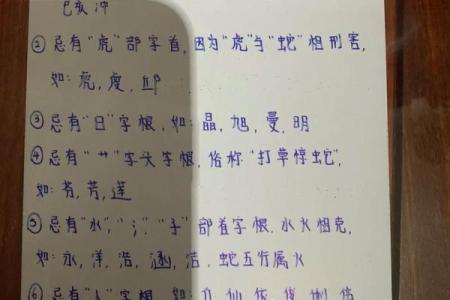 巳亥冲
② 忌有“虎”部字首,因为“虎”与“蛇”相刑害,
如:虎,虔,邱
③ 忌有“日”字根,如:晶,旭,曼,明
④ 忌有“艹”字头字根,俗称“打草惊蛇”,
如:芳,莲
⑤ 忌有“水”,“氵”,“子”部首字根,水火相克,
如:永,洋,浩,涵,洁,蛇五行属火
⑥ 忌有“人”字根,如:仙